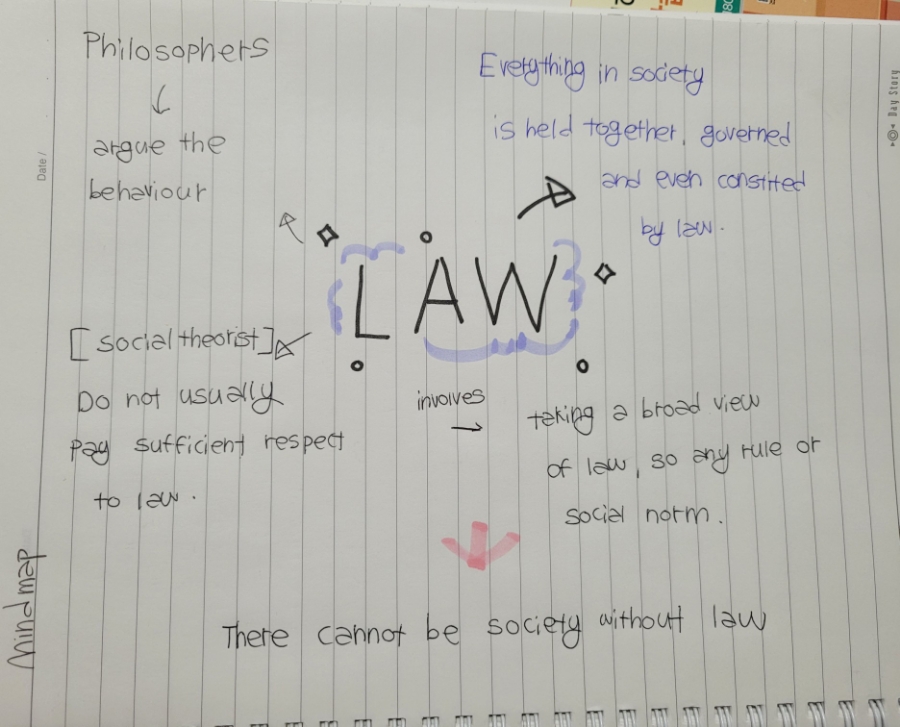 Philosophers
argue the
behaviour
Everything in society
is held together, governed
and even constited
by law.
LAW
[social theorist]
Do not usually
pay sufficient respect
to law.
involves
taking a broad view
of law, so any rule or
social norm.
There cannot be society without law
Mindmap
Date /